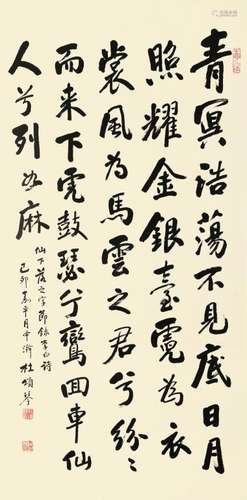 青冥浩蕩不見底日月
照耀金銀臺霓為衣
裳風為馬雲之君兮紛紛
而来下虎鼓瑟兮鸞回車仙
人兮列如麻
仙下落之字節錄李白詩
己卯嘉平月中澣杜頌琴